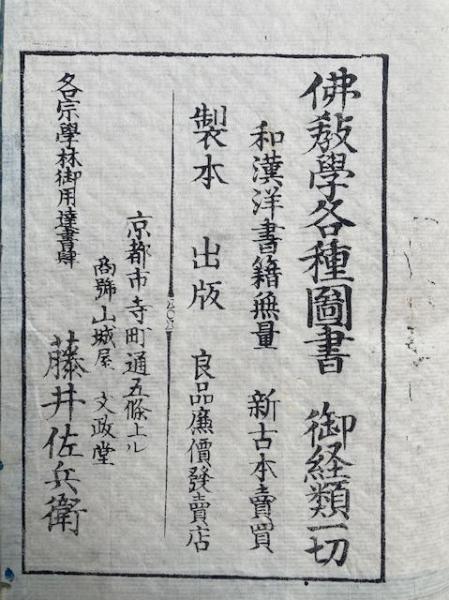 佛敎學各種圖書 御経類一切
和漢洋書籍無量 新古本賣買
製本 出版 良品廉價發賣店
京都市寺町通五條上ル
商號山城屋 文政堂
藤井佐兵衛
各宗學林御用達書肆